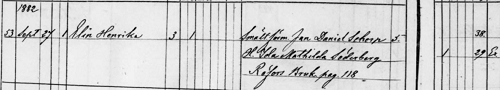 1882
53 Sept 27 1 Elin Henrika 3 1 Smältsm. Jan Daniel 5. 38.
H. Ida Mathilda Söderberg 1 29 Ex
Bruk pag. 118